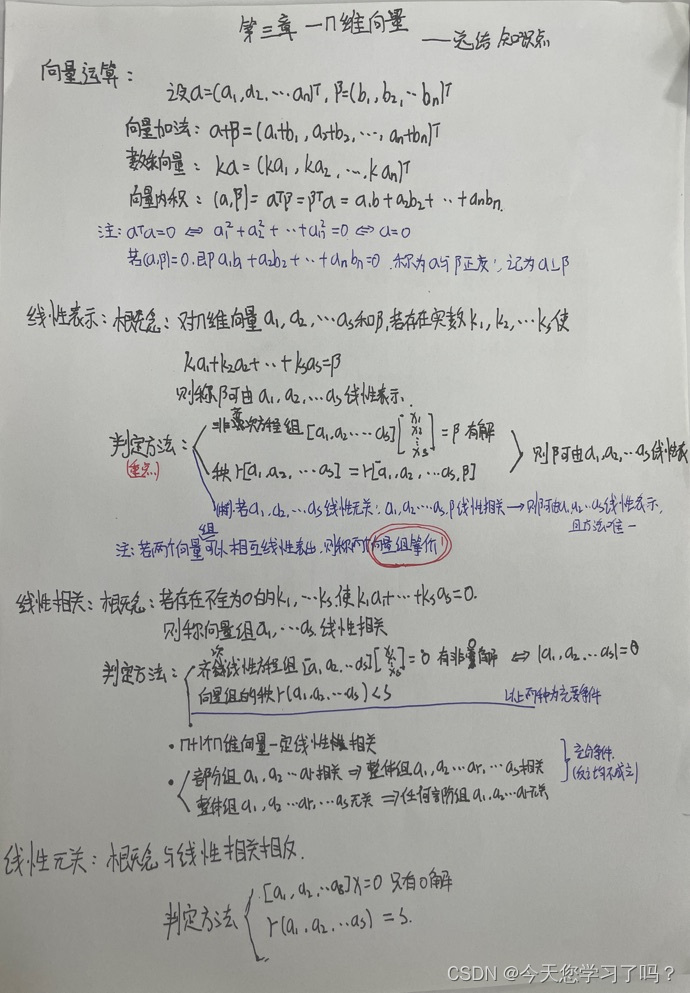 第三章—n维向量
——总结 知识点
向量运算：
设α=(a₁,a₂,…aₙ)ᵀ, β=(b₁,b₂,…bₙ)ᵀ
向量加法：α+β=(a₁+b₁, a₂+b₂, …, aₙ+bₙ)ᵀ
数乘向量：kα=(ka₁, ka₂, …, kaₙ)ᵀ
向量内积：(α,β)=αᵀβ=βᵀα=a₁b+a₂b₂+…+aₙbₙ.
注：αᵀα=0 ⇔ a₁²+a₂²+…+aₙ²=0 ⇔ α=0
若(α,β)=0.即a₁b₁+a₂b₂+…+aₙbₙ=0.称为α与β正交，记为α⊥β
线性表示：概念：对n维向量α₁,α₂,…αs和β,若存在实数k₁,k₂,…ks使
k₁α₁+k₂α₂+…+ksαs=β
则称β可由α₁,α₂,…αs线性表示.
判定方法：
(重点)
非齐次方程组[α₁,α₂…αs][x₁ x₂ ⋮ xs]=β有解
秩r[α₁,α₂,…αs]=r[α₁,α₂,…αs,β]
则β可由α₁,α₂,…αs线性表
若α₁,α₂,…αs线性无关；α₁,α₂…αs,β线性相关→则β可由α₁,α₂…αs线性表示,
且方法唯一
注：若两个向量组可以相互线性表出.则称两个向量组等价！
线性相关：概念：若存在不全为0的k₁,…ks.使k₁α₁+…+ksαs=0.
则称向量组α₁,…αs.线性相关
判定方法：
齐次线性方程组[α₁,α₂…αs][x₁ x₂ ⋮ xs]=0 有非0解 ⇔ |α₁,α₂…αs|=0
向量组的秩r(α₁,α₂…αs)<s
以上两种为充要条件
·n+1个n维向量一定线性相关
·部分组α₁,α₂…αr相关⇒整体组α₁,α₂…αr,…αs相关
整体组α₁,α₂…αr,…αs无关⇒任何部分组α₁,α₂…αr无关
充分条件.
(反之均不成立)
线性无关：概念与线性相关相反.
判定方法
[α₁,α₂,…αs]x=0 只有0解
r(α₁,α₂,…αs)=s.
CSDN @今天您学习了吗？